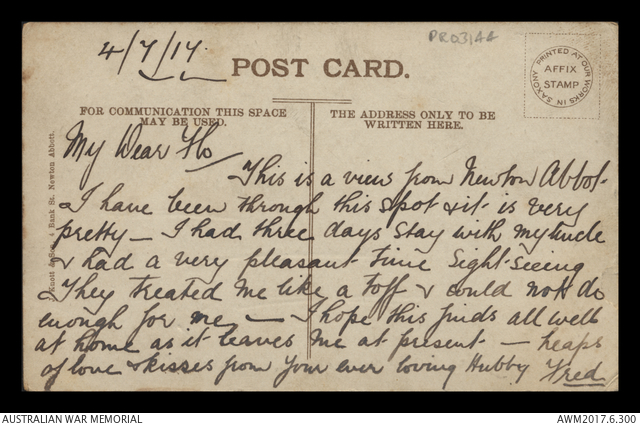 PRO3144
4/7/17.
POST CARD.
PRINTED AT OUR WORKS IN SAXONY
AFFIX
STAMP
FOR COMMUNICATION THIS SPACE
MAY BE USED.
THE ADDRESS ONLY TO BE
WRITTEN HERE.
4 Bank St. Newton Abbott.
My Dear Flo
This is a view from Newton Abbot
I have been through this spot & it is very
pretty — I had three days stay with my uncle
& had a very pleasant time Sight-seeing
They treated me like a toff & could not do
enough for me — I hope this finds all well
at home as it leaves me at present — heaps
of love & kisses from your ever loving Hubby Fred
AUSTRALIAN WAR MEMORIAL
AWM2017.6.300